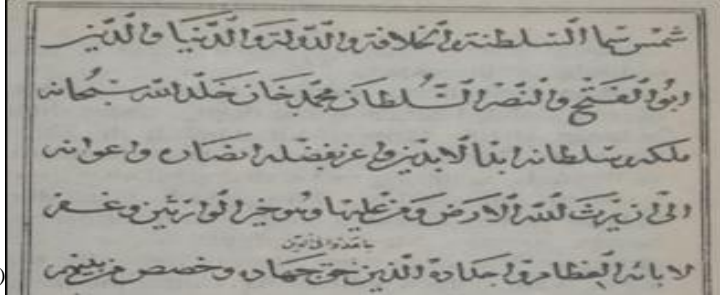 شمس سما السلطنة والخلافة والدولة والدنيا والدين
ابو الفتح والنصر السلطان محمد خان خلد الله سبحانه
ملكه وسلطانه ابد الابدين واعز بفضله انصاره واعوانه
الى ان يرث الله الارض ومن عليها وهو خير الوارثين وغفر
لابائه العظام واجداده الذين حق جهاده وخصص من بينهم